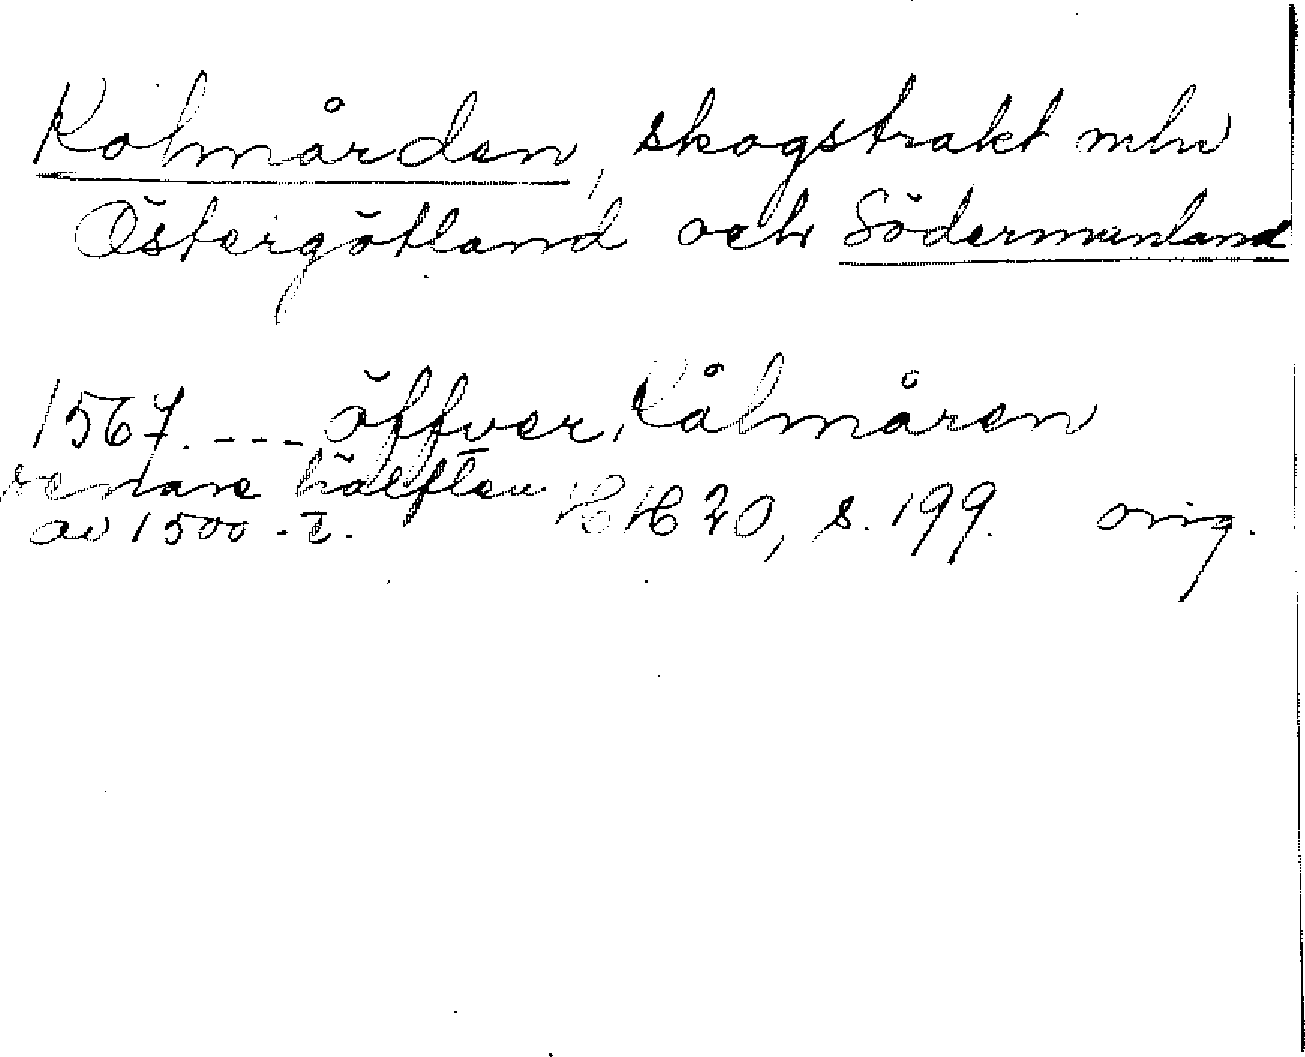 Kolmården, skogstrakt mln
Östergötland och Södermanland
1567. --- öffver Kålmåren
senare hälften
av 1500-t. HH 20, s. 199. orig.